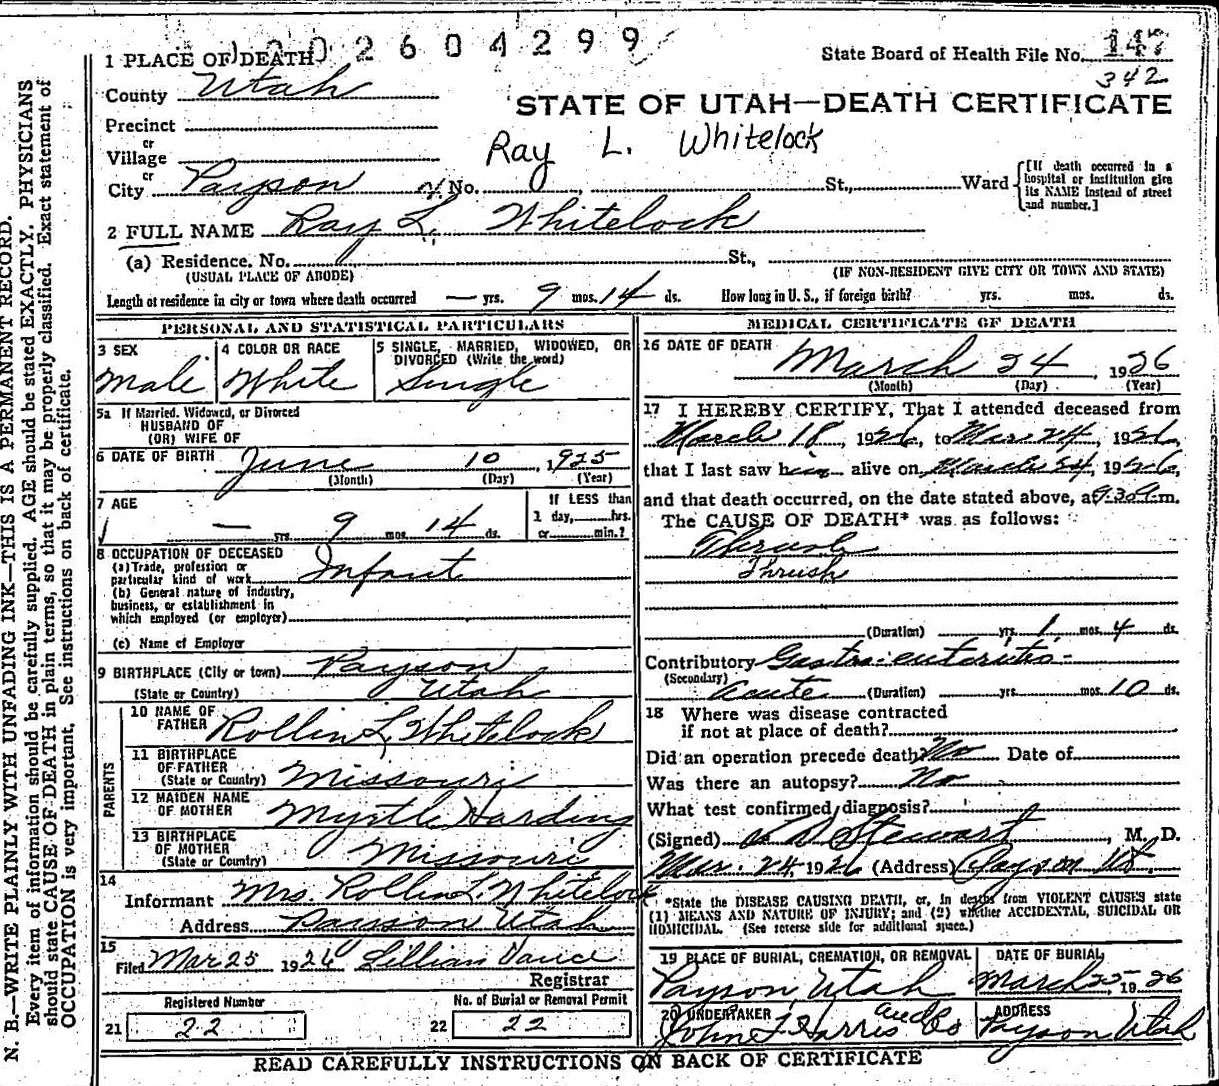 N. B.—WRITE PLAINLY WITH UNFADING INK—THIS IS A PERMANENT RECORD.
Every item of information should be carefully supplied. AGE should be stated EXACTLY. PHYSICIANS
should state CAUSE OF DEATH in plain terms, so that it may be properly classified. Exact statement of
OCCUPATION is very important. See instructions on back of certificate.
2604299
1 PLACE OF DEATH
State Board of Health File No. 147
342
County Utah
STATE OF UTAH—DEATH CERTIFICATE
Precinct
or
Village
Ray L. Whitelock
or
City Payson No. St., Ward
[If death occurred in a hospital or institution give its NAME instead of street and number.]
2 FULL NAME Ray L. Whitelock
(a) Residence. No. St.,
(USUAL PLACE OF ABODE) (IF NON-RESIDENT GIVE CITY OR TOWN AND STATE)
Length of residence in city or town where death occurred — yrs. 9 mos. 14 ds. How long in U. S., if foreign birth? yrs. mos. ds.
PERSONAL AND STATISTICAL PARTICULARS
3 SEX
Male
4 COLOR OR RACE
White
5 SINGLE, MARRIED, WIDOWED, OR DIVORCED (Write the word)
Single
5a If Married, Widowed, or Divorced
HUSBAND OF
(OR) WIFE OF
6 DATE OF BIRTH June 10, 1925
(Month) (Day) (Year)
7 AGE
— yrs. 9 mos. 14 ds.
If LESS than
1 day, hrs.
or min.?
8 OCCUPATION OF DECEASED
(a) Trade, profession or
particular kind of work Infant
(b) General nature of industry,
business, or establishment in
which employed (or employer)
(c) Name of Employer
9 BIRTHPLACE (City or town) Payson
(State or Country) Utah
PARENTS
10 NAME OF
FATHER Rollin L Whitelock
11 BIRTHPLACE
OF FATHER
(State or Country) Missouri
12 MAIDEN NAME
OF MOTHER Myrtle Harding
13 BIRTHPLACE
OF MOTHER
(State or Country) Missouri
14
Informant Mrs. Rollin L Whitelock
Address Payson Utah
15
Filed Mar 25 1926 Lillian Vance
Registrar
Registered Number
21 22
No. of Burial or Removal Permit
22 22
MEDICAL CERTIFICATE OF DEATH
16 DATE OF DEATH
March 24 1926
(Month) (Day) (Year)
17 I HEREBY CERTIFY, That I attended deceased from
March 18, 1926, to Mar 24, 1926,
that I last saw him alive on March 24, 1926,
and that death occurred, on the date stated above, at 9:30 m.
The CAUSE OF DEATH* was as follows:
Thrush
Thrush
(Duration) yrs. 1 mos. 4 ds.
Contributory Gastro-enteritis-
(Secondary)
Acute (Duration) yrs. mos. 10 ds.
18 Where was disease contracted
if not at place of death?
Did an operation precede death? No Date of
Was there an autopsy? No
What test confirmed diagnosis?
(Signed) Stewart, M. D.
Mar. 24, 1926 (Address) Payson Ut.
*State the DISEASE CAUSING DEATH, or, in deaths from VIOLENT CAUSES state
(1) MEANS AND NATURE OF INJURY; and (2) whether ACCIDENTAL, SUICIDAL OR
HOMICIDAL. (See reverse side for additional space.)
19 PLACE OF BURIAL, CREMATION, OR REMOVAL
Payson, Utah
DATE OF BURIAL
March 25, 1926
20 UNDERTAKER
John F Harris and Co
ADDRESS
Payson Utah
READ CAREFULLY INSTRUCTIONS ON BACK OF CERTIFICATE